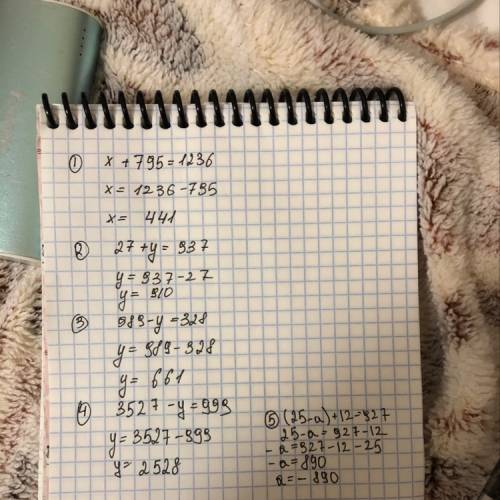 ① x + 795 = 1236
x = 1236 - 795
x = 441
② 27 + y = 937
y = 937 - 27
y = 910
③ 989 - y = 328
y = 989 - 328
y = 661
④ 3527 - y = 999
y = 3527 - 999
y = 2528
⑤ (25 - a) + 12 = 927
25 - a = 927 - 12
- a = 927 - 12 - 25
- a = 890
a = - 890